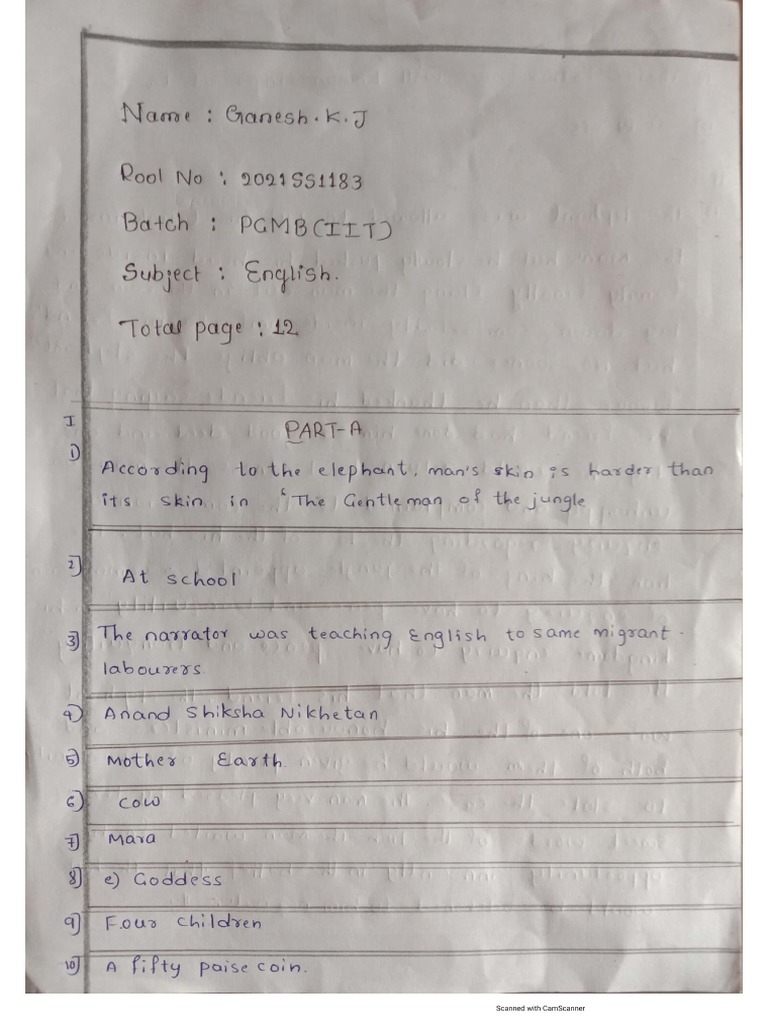 Name : Ganesh.K.J
Rool No : 2021SS1183
Batch : PGMB(IIT)
Subject : English.
Total page : 12
I PART-A
1) According to the elephant, man's skin is harder than
its skin in 'The Gentleman of the jungle
2) At school
3) The narrator was teaching English to same migrant.
labourers.
4) Anand Shiksha Nikhetan
5) Mother Earth
6) Cow
7) Mara
8) e) Goddess
9) Four children
10) A fifty paise coin.
Scanned with CamScanner